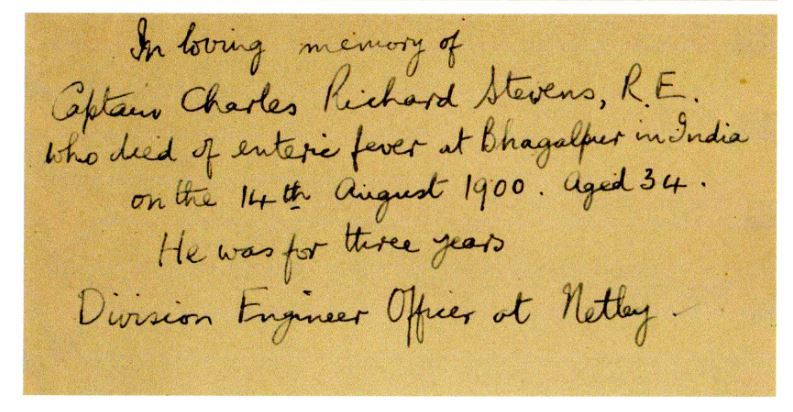 In loving memory of
Captain Charles Richard Stevens, R.E.
who died of enteric fever at Bhagalpur in India
on the 14th August 1900. Aged 34.
He was for three years
Division Engineer Officer at Netley.